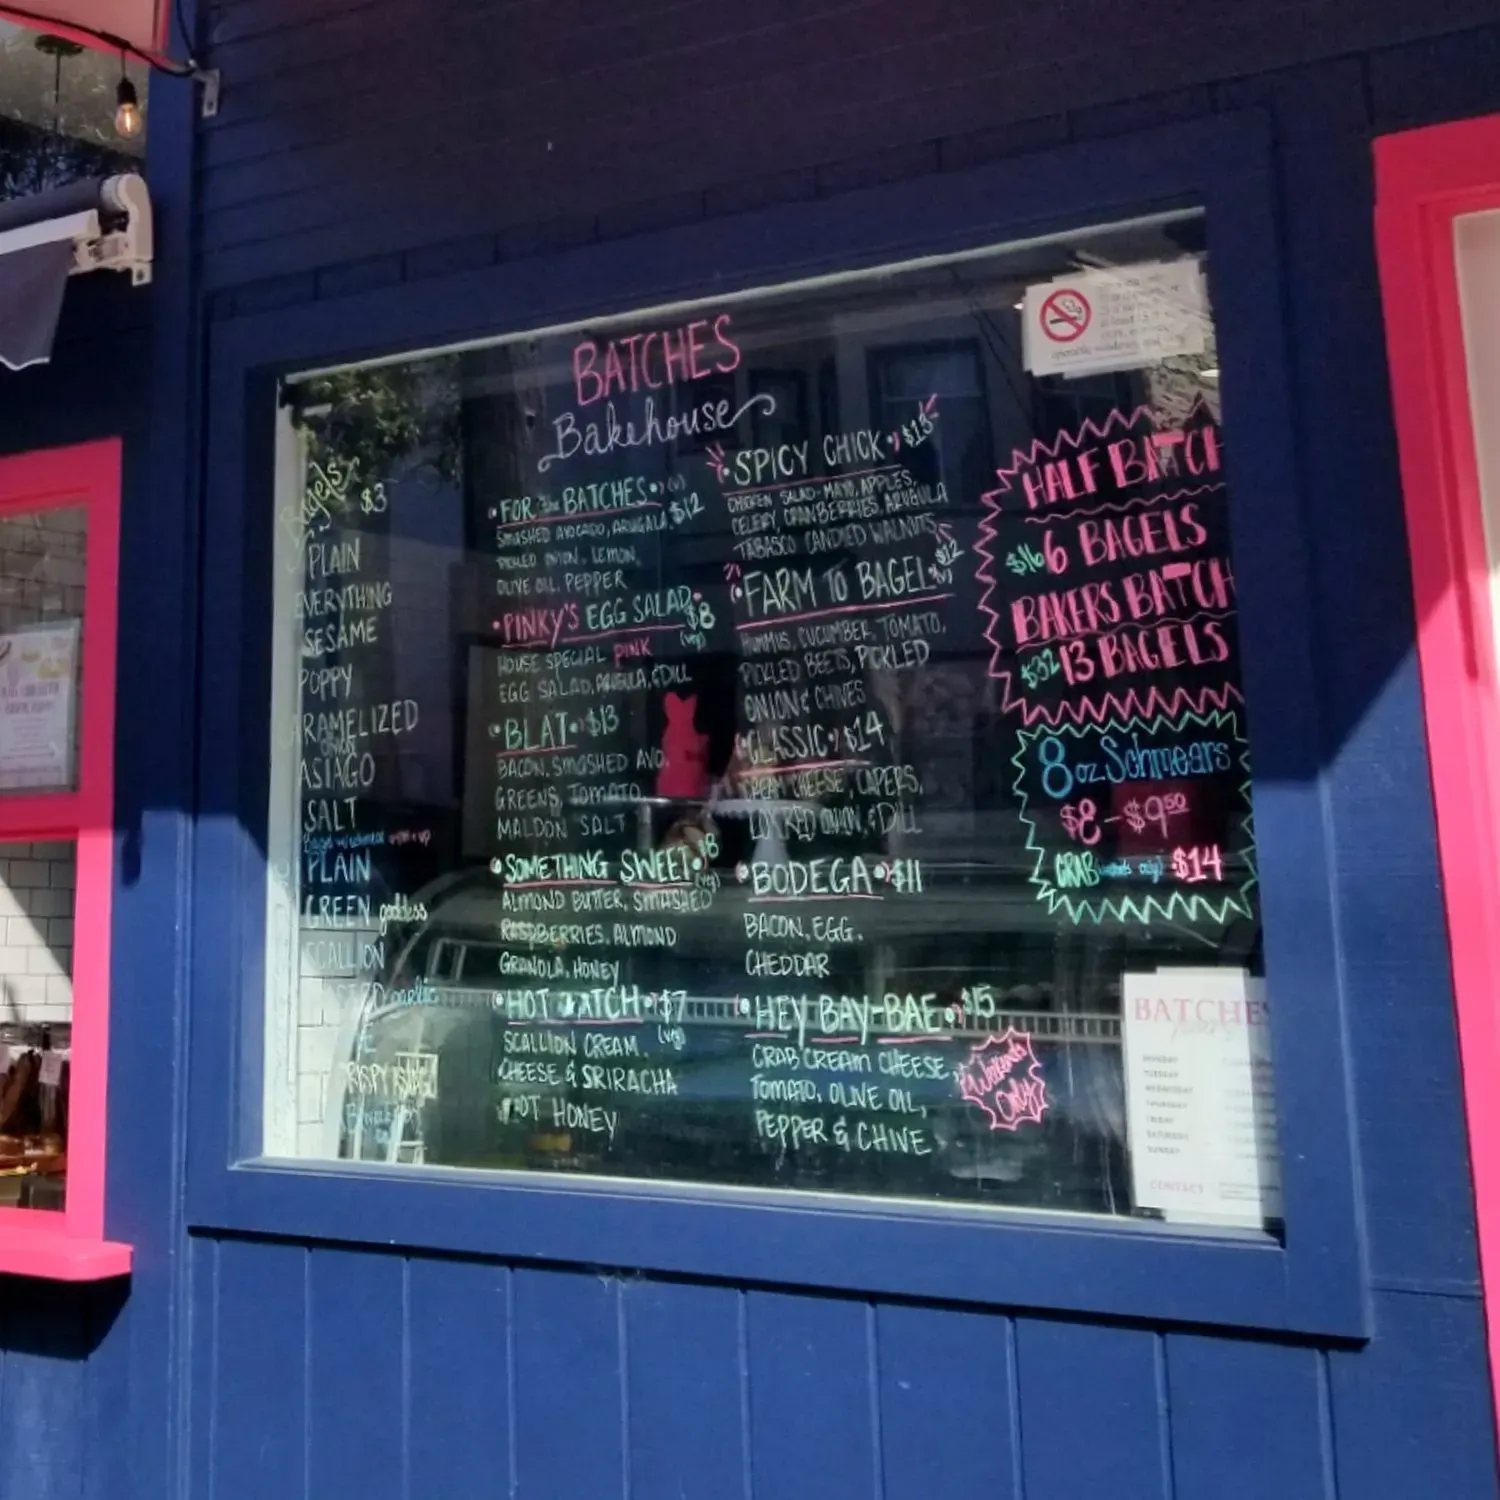 BATCHES
Bakehouse
Bagels
$3
PLAIN
EVERYTHING
SESAME
POPPY
CARAMELIZED
ONION
ASIAGO
SALT
PLAIN
GREEN goddess
SCALLION
garlic
• FOR the BATCHES • (v)
$12
SMASHED AVOCADO, ARUGULA
PICKLED ONION, LEMON,
OLIVE OIL, PEPPER
• PINKY'S EGG SALAD •
$8
(veg)
HOUSE SPECIAL PINK
EGG SALAD, ARUGULA, & DILL
• BLAT • $13
BACON, SMASHED AVO,
GREENS, TOMATO,
MALDON SALT
• SOMETHING SWEET • $8
(veg)
ALMOND BUTTER, SMASHED
RASPBERRIES, ALMOND
GRANOLA, HONEY
• HOT BATCH • $7
(veg)
SCALLION CREAM
CHEESE & SRIRACHA
HOT HONEY
• SPICY CHICK • $13
CHICKEN SALAD - MAYO, APPLES,
CELERY, CRANBERRIES, ARUGULA
TABASCO CANDIED WALNUTS
• FARM TO BAGEL • (v) $12
HUMMUS, CUCUMBER, TOMATO,
PICKLED BEETS, PICKLED
ONION & CHIVES
• CLASSIC • $14
CREAM CHEESE, CAPERS,
LOX, RED ONION, & DILL
• BODEGA • $11
BACON, EGG,
CHEDDAR
• HEY BAY-BAE • $15
CRAB CREAM CHEESE,
TOMATO, OLIVE OIL,
PEPPER & CHIVE
Weekends
Only
HALF BATCH
$16 6 BAGELS
BAKERS BATCH
$32 13 BAGELS
8 oz Schmears
$8 - $9.50
CRAB (weekends only) $14
BATCHES
MONDAY
TUESDAY
WEDNESDAY
THURSDAY
FRIDAY
SATURDAY
SUNDAY
CONTACT